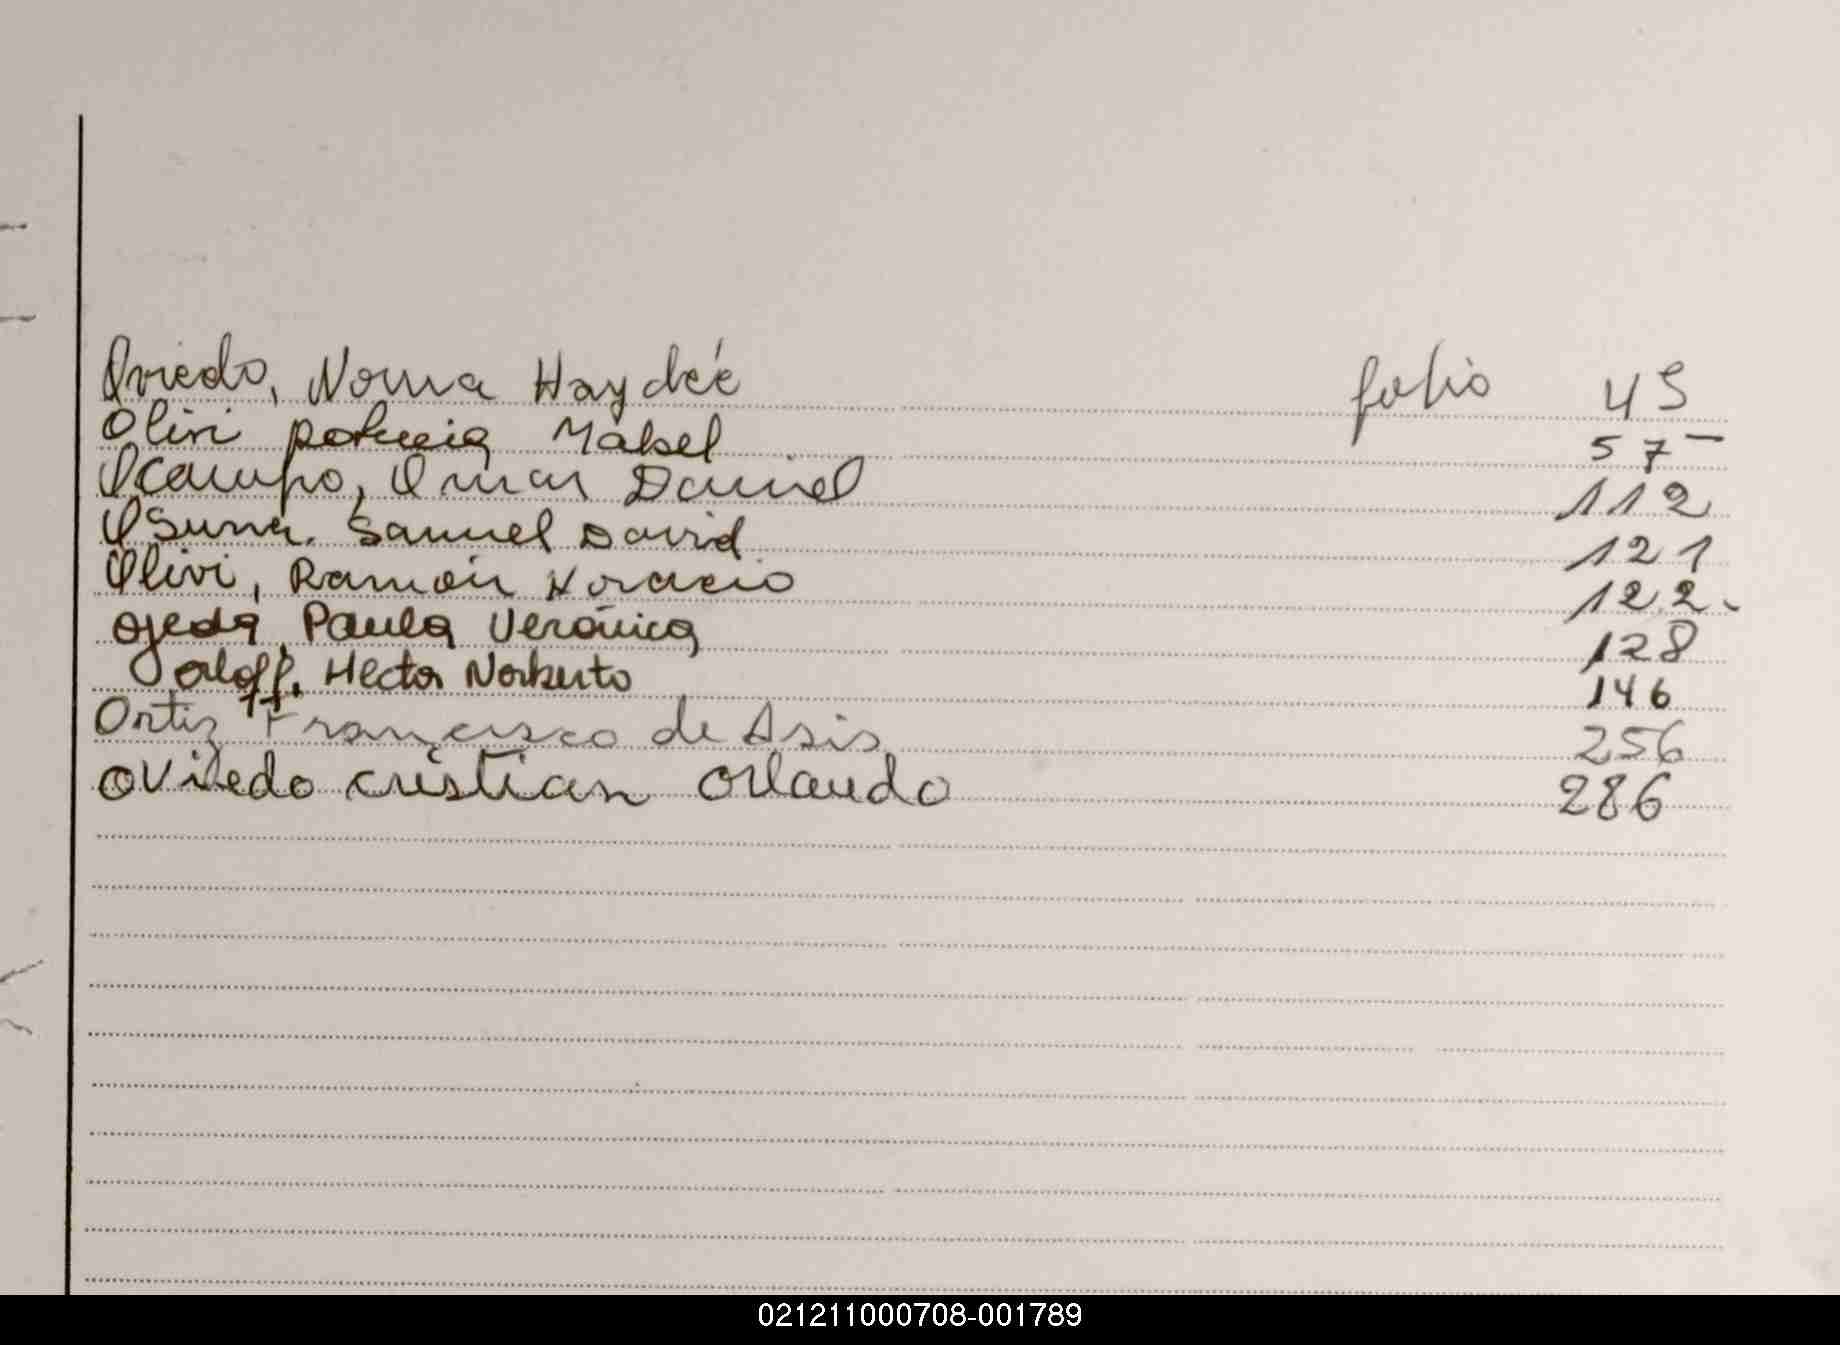 Oviedo, Norma Haydeé folio 45
Olivi Patricia Mabel 57
Ocampo, Omar Daniel 112
Osuna. Samuel David 121
Olivi, Ramón Horacio 122.
Ojeda, Paula Verónica 128
Orloff, Hector Norberto 146
Ortiz Francisco de Asis 256
Oviedo Cristian Orlando 286
021211000708-001789